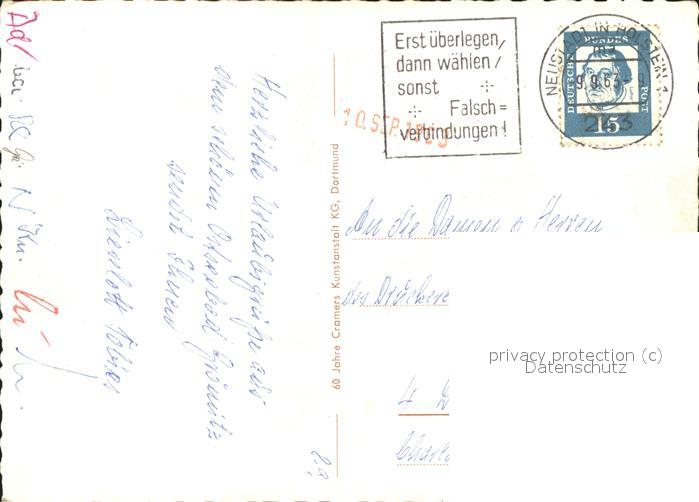 Erst überlegen,
dann wählen/
sonst
Falsch=
verbindungen!
NEUSTADT IN HOLSTEIN 1
9.9.63
243
DEUTSCHE BUNDESPOST
15
10. SEP. 1963
Herzliche Urlaubsgrüße aus
dem schönen Ostseebad Grömitz
sendet Ihnen
Lieselott Tobias
60 Jahre Cramers Kunstanstalt KG, Dortmund
An die Damen u Herren
der Druckere
4 D
privacy protection (c)
Datenschutz